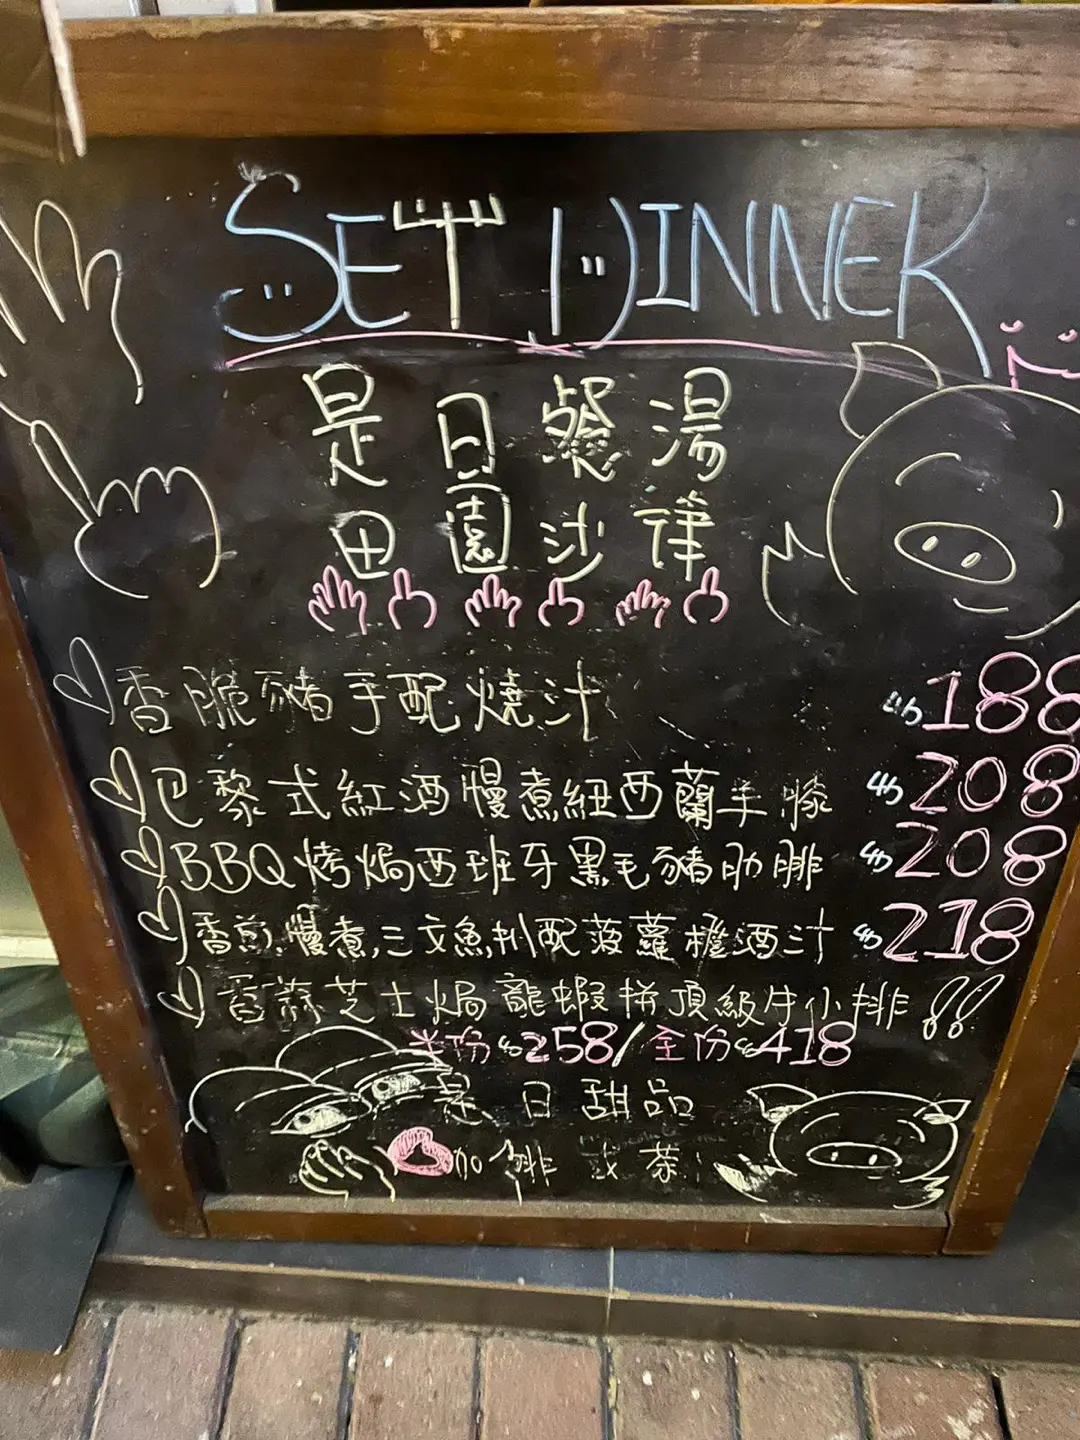 SET DINNER
是日餐湯
田園沙律
香脆豬手配燒汁 188
巴黎式紅酒慢煮紐西蘭羊膝 208
BBQ烤焗西班牙黑毛豬肋腓 208
香煎慢煮三文魚扒配菠蘿橙酒汁 218
香蒜芝士焗龍蝦拼頂級牛小排!!
半份 258/全份 418
是日甜品
咖啡 或 茶